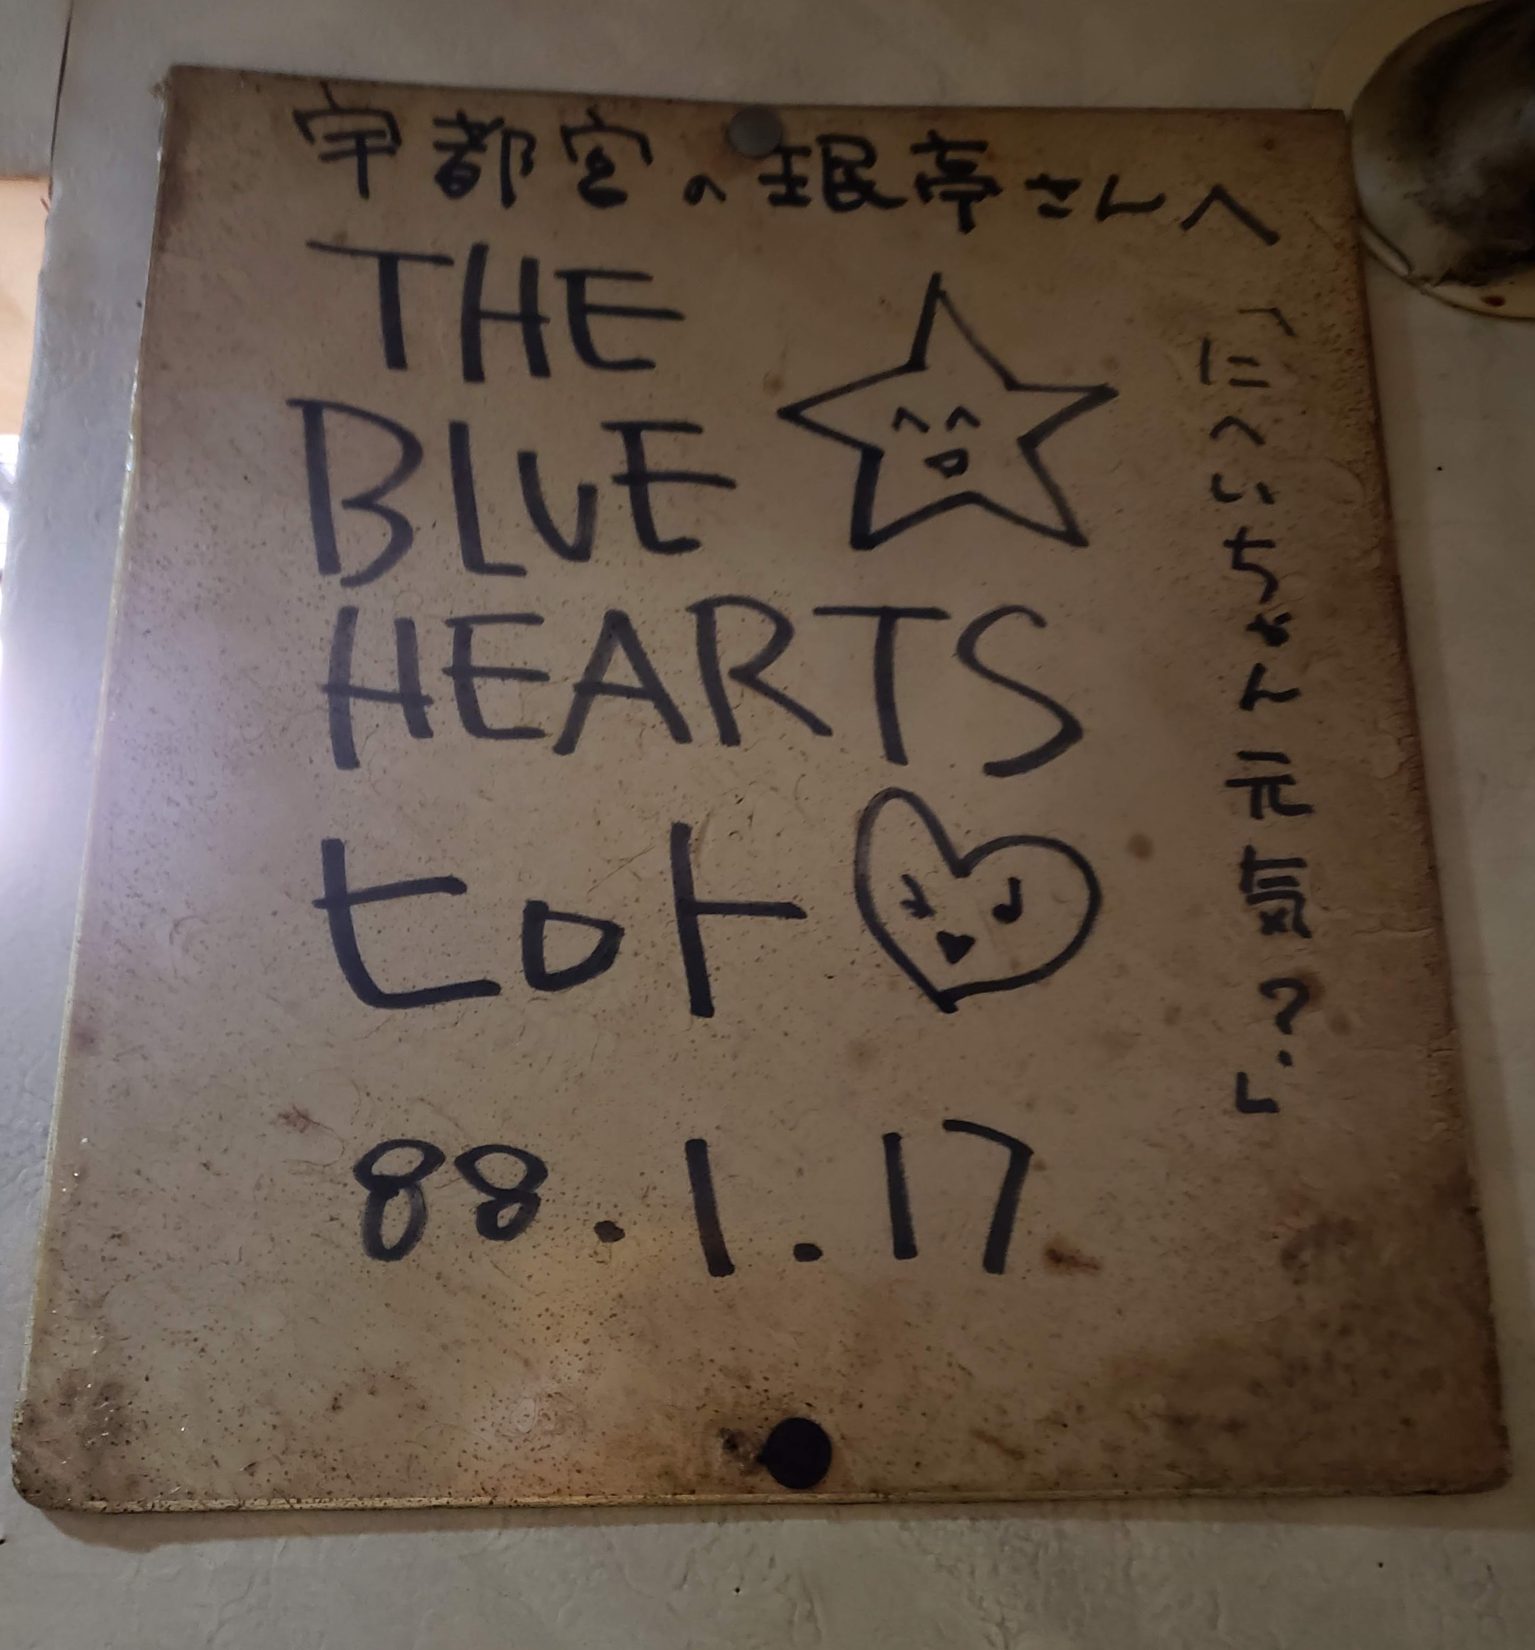 宇都宮の珉亭さんへ
THE
BLUE
HEARTS
ヒロト
88.1.17
「にいちゃん元気?」